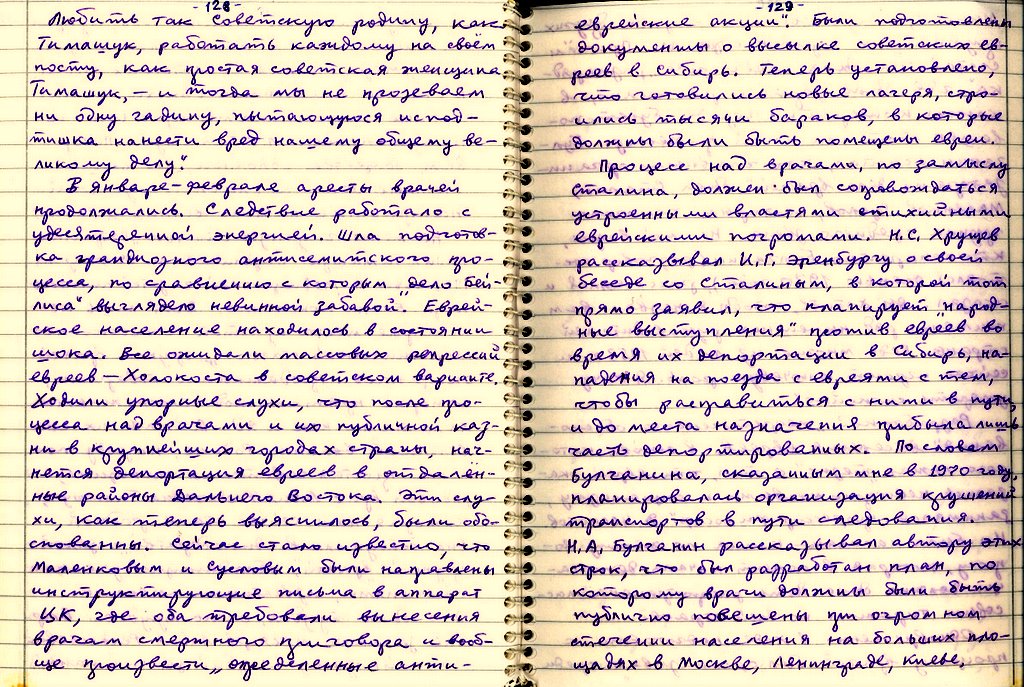 - 128 -
Любить так Советскую родину, как
Тимашук, работать каждому на своём
посту, как простая советская женщина
Тимашук, — и тогда мы не прозеваем
ни одну гадину, пытающуюся испод-
тишка нанести вред нашему общему ве-
ликому делу".
В январе-феврале аресты врачей
продолжались. Следствие работало с
удесятеренной энергией. Шла подготов-
ка грандиозного антисемитского про-
цесса, по сравнению с которым „дело Бей-
лиса" выглядело невинной забавой. Еврей-
ское население находилось в состоянии
шока. Все ожидали массовых репрессий
евреев — Холокоста в советском варианте.
Ходили упорные слухи, что после про-
цесса над врачами и их публичной каз-
ни в крупнейших городах страны, нач-
нется депортация евреев в отдален-
ные районы Дальнего Востока. Эти слу-
хи, как теперь выяснилось, были обо-
снованны. Сейчас стало известно, что
Маленковым и Сусловым были направлены
инструктирующие письма в аппарат
ЦК, где оба требовали вынесения
врачам смертного приговора и вооб-
ще произвести „определенные анти-
- 129 -
еврейские акции". Были подготовлены
документы о высылке советских ев-
реев в Сибирь. Теперь установлено,
что готовились новые лагеря, стро-
ились тысячи бараков, в которые
должны были быть помещены евреи.
Процесс над врачами, по замыслу
Сталина, должен был сопровождаться
устроенными властями стихийными
еврейскими погромами. Н.С. Хрущев
рассказывал И.Г. Эренбургу о своей
беседе со Сталиным, в которой тот
прямо заявил, что планирует „народ-
ные выступления" против евреев во
время их депортации в Сибирь, на-
падения на поезда с евреями с тем,
чтобы расправиться с ними в пути,
и до места назначения прибыла лишь
часть депортированных. По словам
Булганина, сказанным мне в 1970 году,
планировалась организация крушений
транспортов в пути следования.
Н.А. Булганин рассказывал автору этих
строк, что был разработан план, по
которому врачи должны были быть
публично повешены при огромном
стечении населения на больших пло-
щадях в Москве, Ленинграде, Киеве,